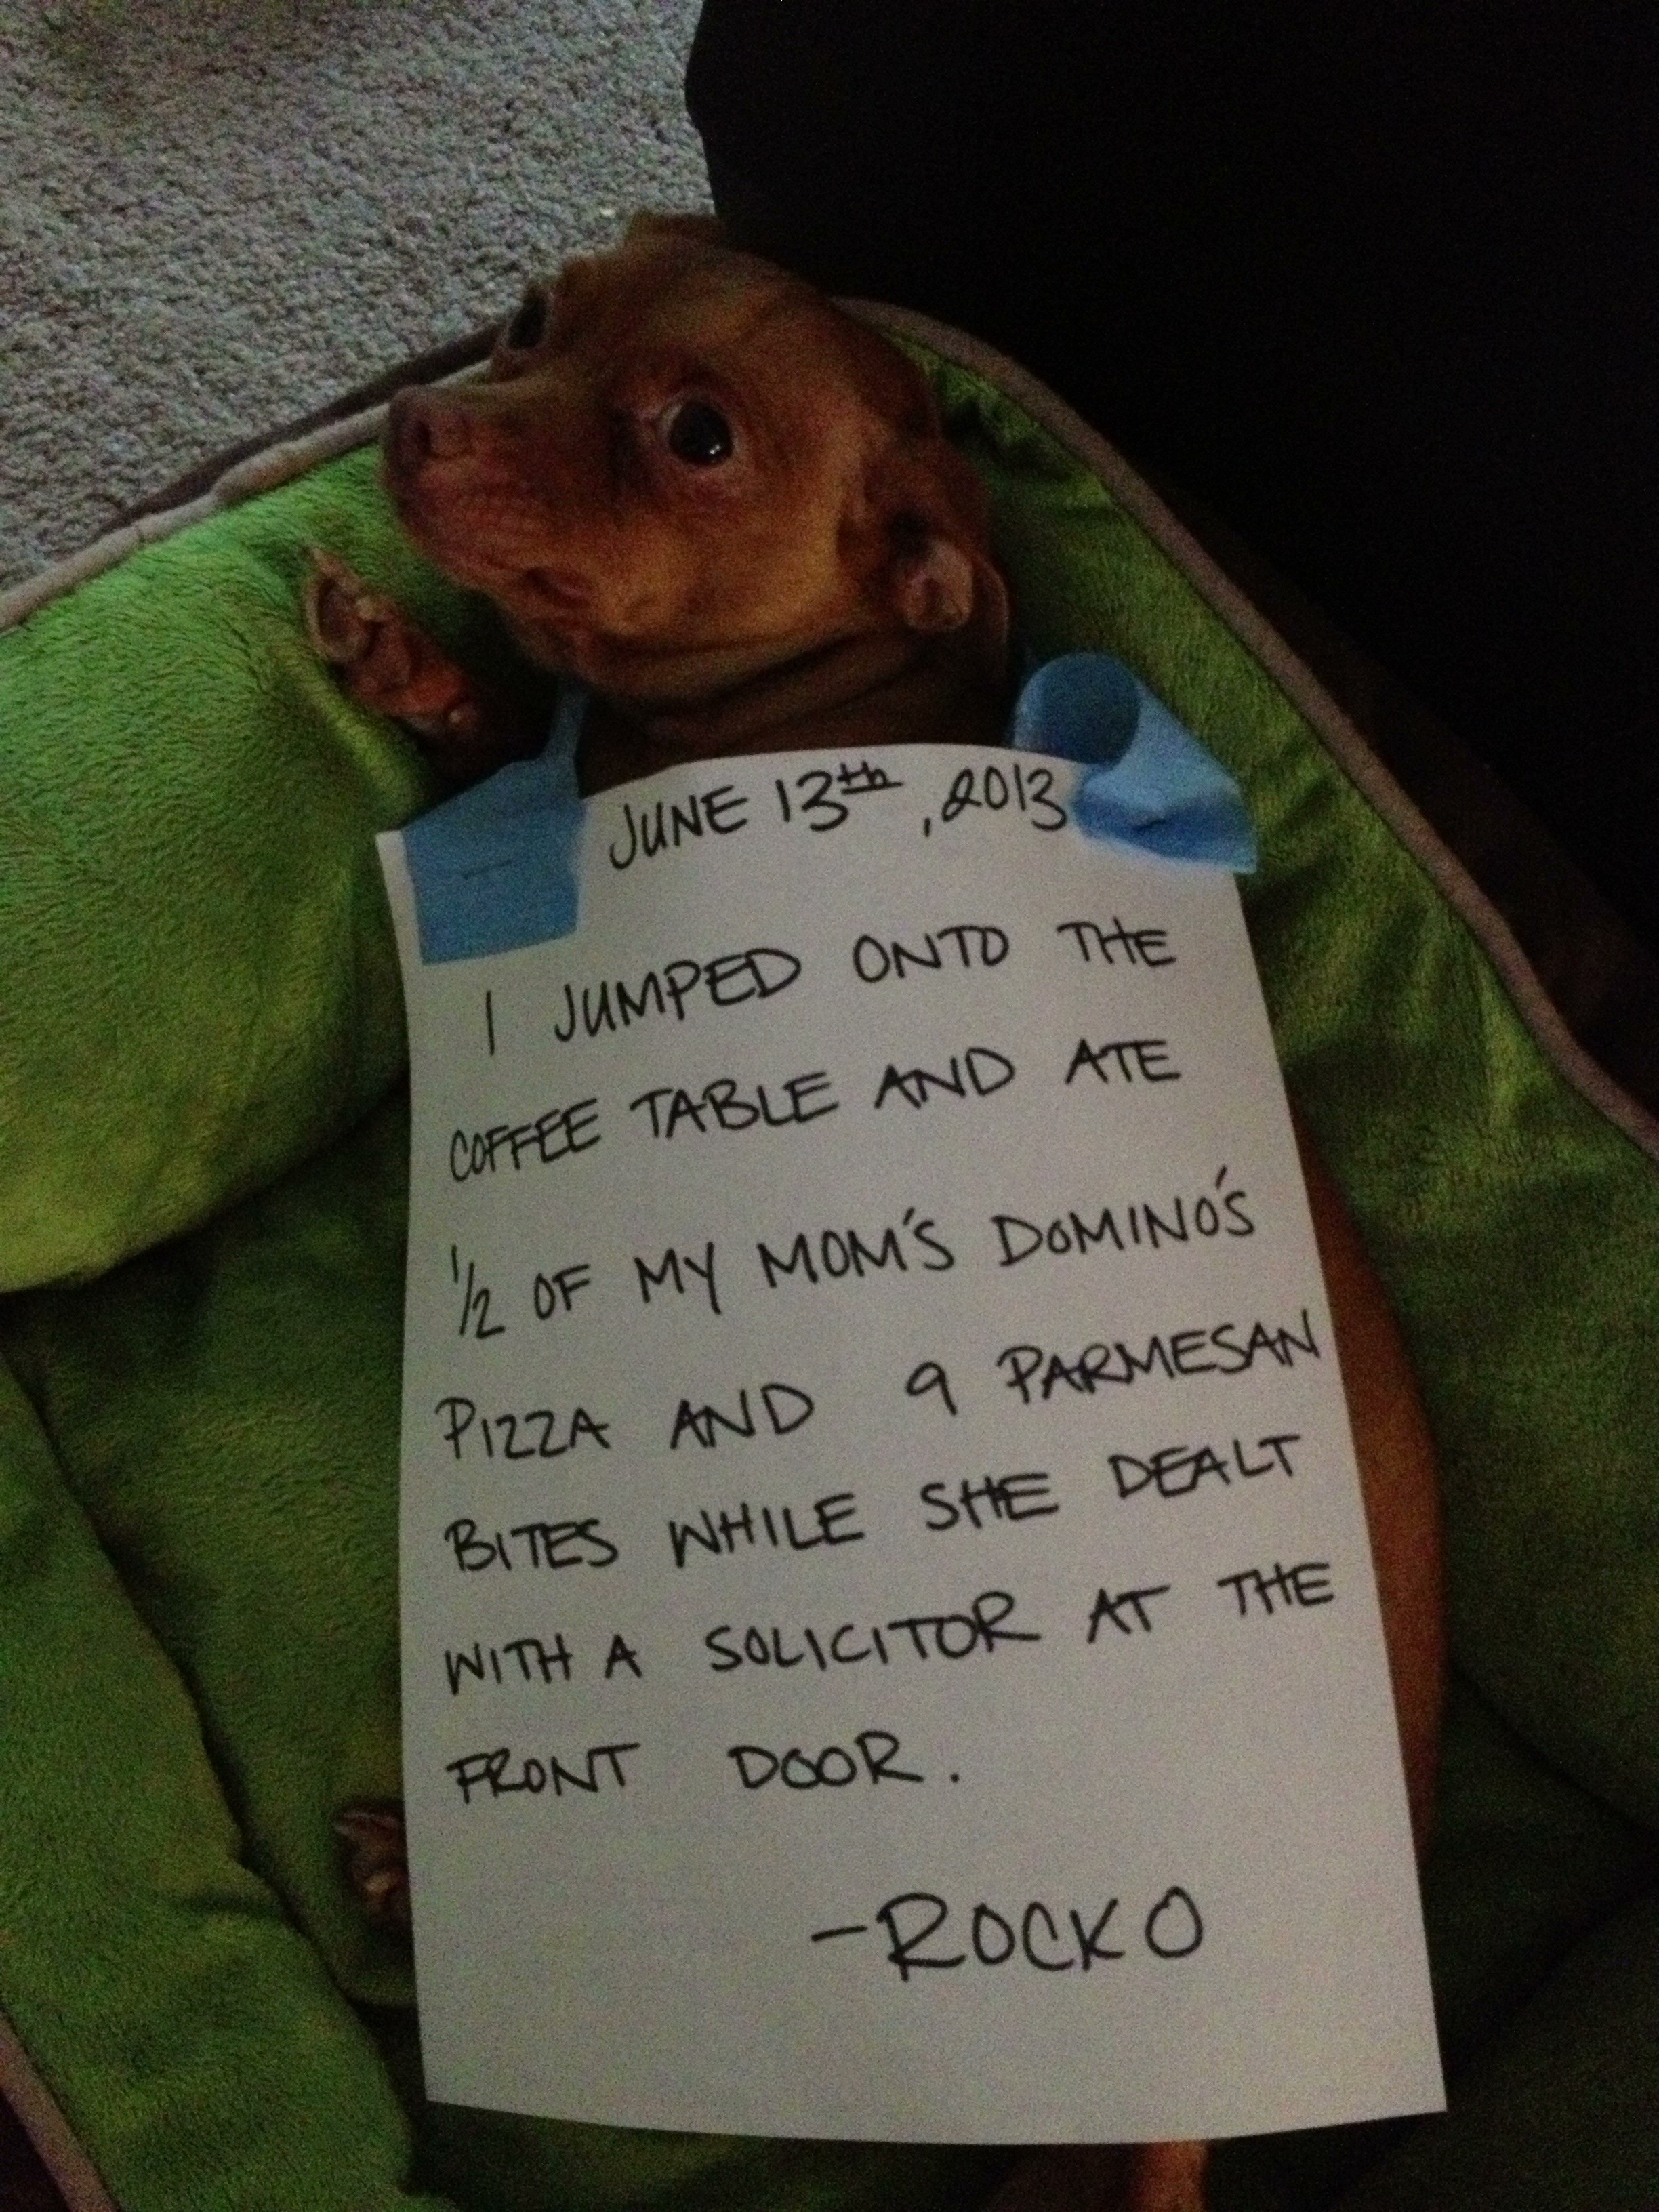 JUNE 13th, 2013
I JUMPED ONTO THE
COFFEE TABLE AND ATE
1/2 OF MY MOM'S DOMINO'S
PIZZA AND 9 PARMESAN
BITES WHILE SHE DEALT
WITH A SOLICITOR AT THE
FRONT DOOR.
-ROCKO